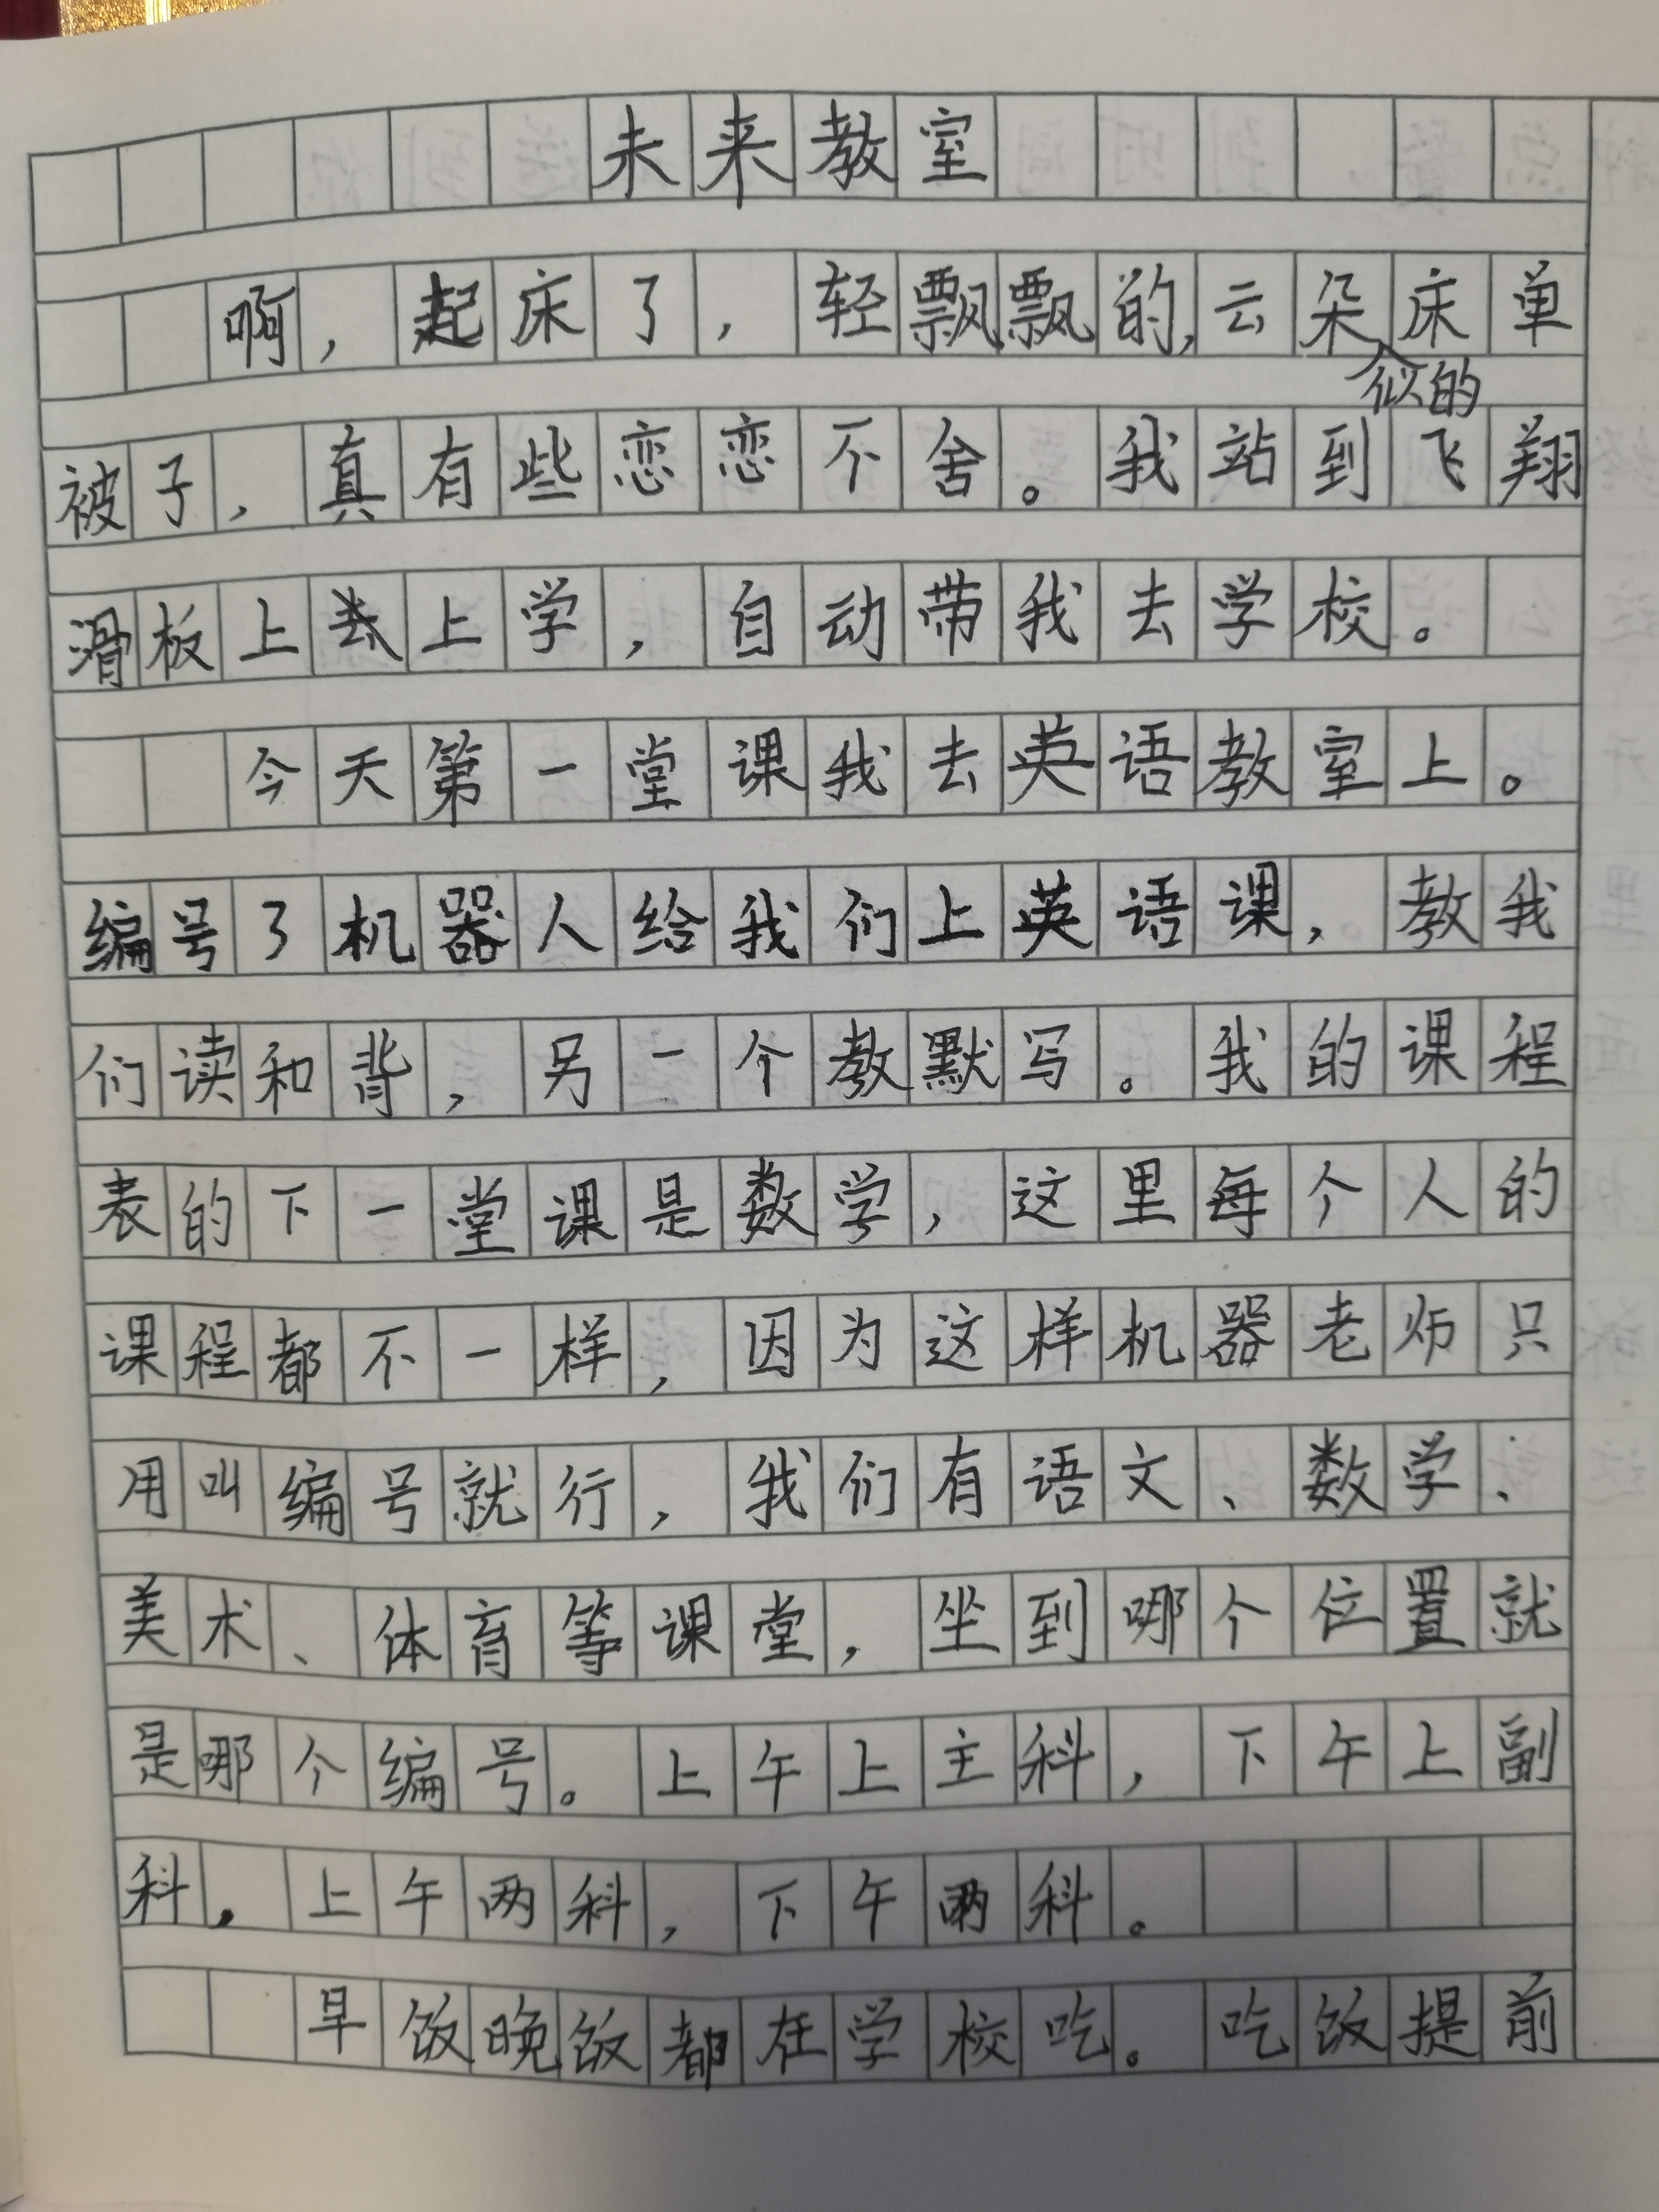 未来教室
啊，起床了，轻飘飘的，云朵似的床单
被子，真有些恋恋不舍。我站到飞翔
滑板上去上学，自动带我去学校。
今天第一堂课我去英语教室上。
编号3机器人给我们上英语课，教我
们读和背，另一个教默写。我的课程
表的下一堂课是数学，这里每个人的
课程都不一样，因为这样机器老师只
用叫编号就行，我们有语文、数学、
美术、体育等课堂，坐到哪个位置就
是哪个编号。上午上主科，下午上副
科。上午两科，下午两科。
早饭晚饭都在学校吃。吃饭提前